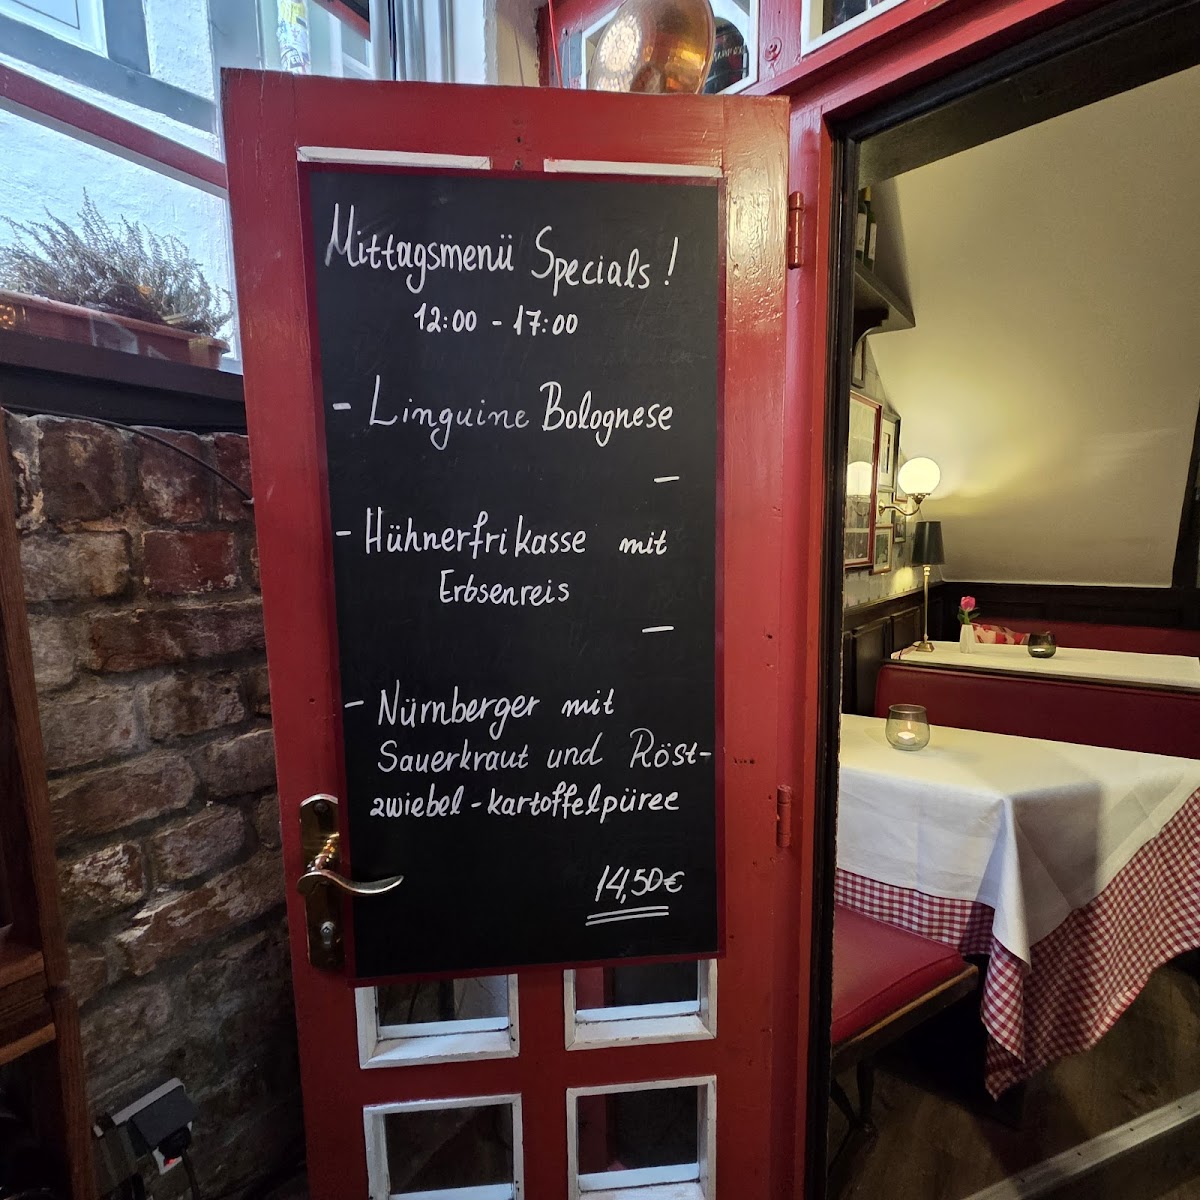 Mittagsmenü Specials!
12:00 - 17:00
- Linguine Bolognese
-
- Hühnerfrikasse mit
Erbsenreis
-
- Nürnberger mit
Sauerkraut und Röst-
zwiebel-kartoffelpüree
14,50€